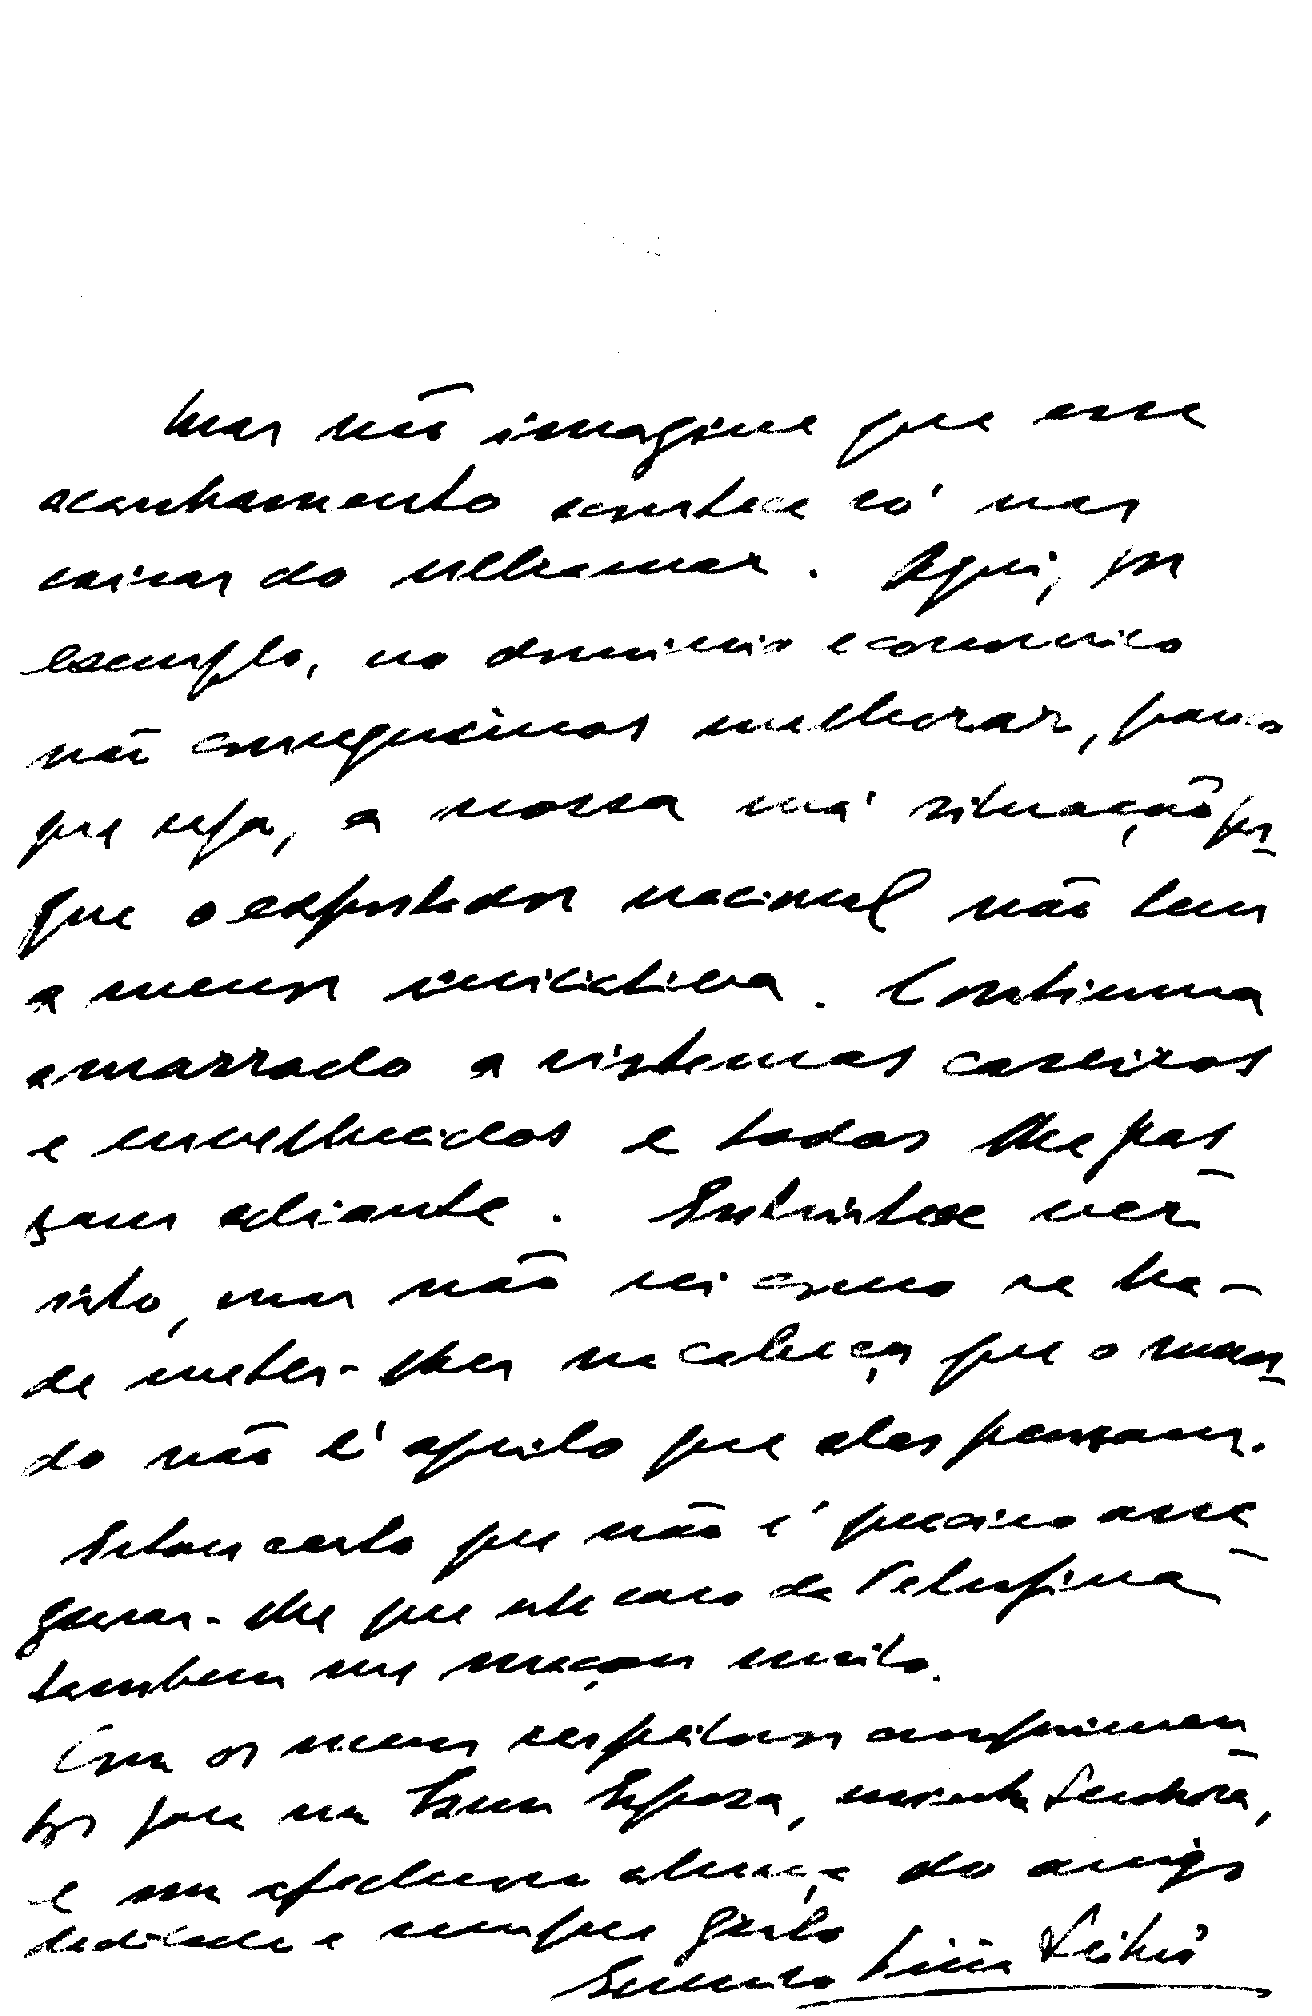 Mas não imagine que esse
acanhamento acontece só nas
coisas do ultramar. Aqui, por
exemplo, no dominio economico
não conseguimos melhorar, pouco
que seja, a nossa má situação por
que o exportador nacional não tem
a menor iniciativa. Continua
amarrado a sistemas caseiros
e envelhecidos e todos lhe pas
sam adiante. Entristece ver
isto, mas não sei como se ha-
de meter-lhes na cabeça que o mun
do não é aquilo que eles pensam.
Estou certo que não é preciso asse
gurar-lhe que este caso da
tambem me maçou muito.
Com os meus respeitosos cumprimen
tos para sua Exma Esposa, minha Senhora,
e um afectuoso abraço do amigo
dedicado e sempre grato